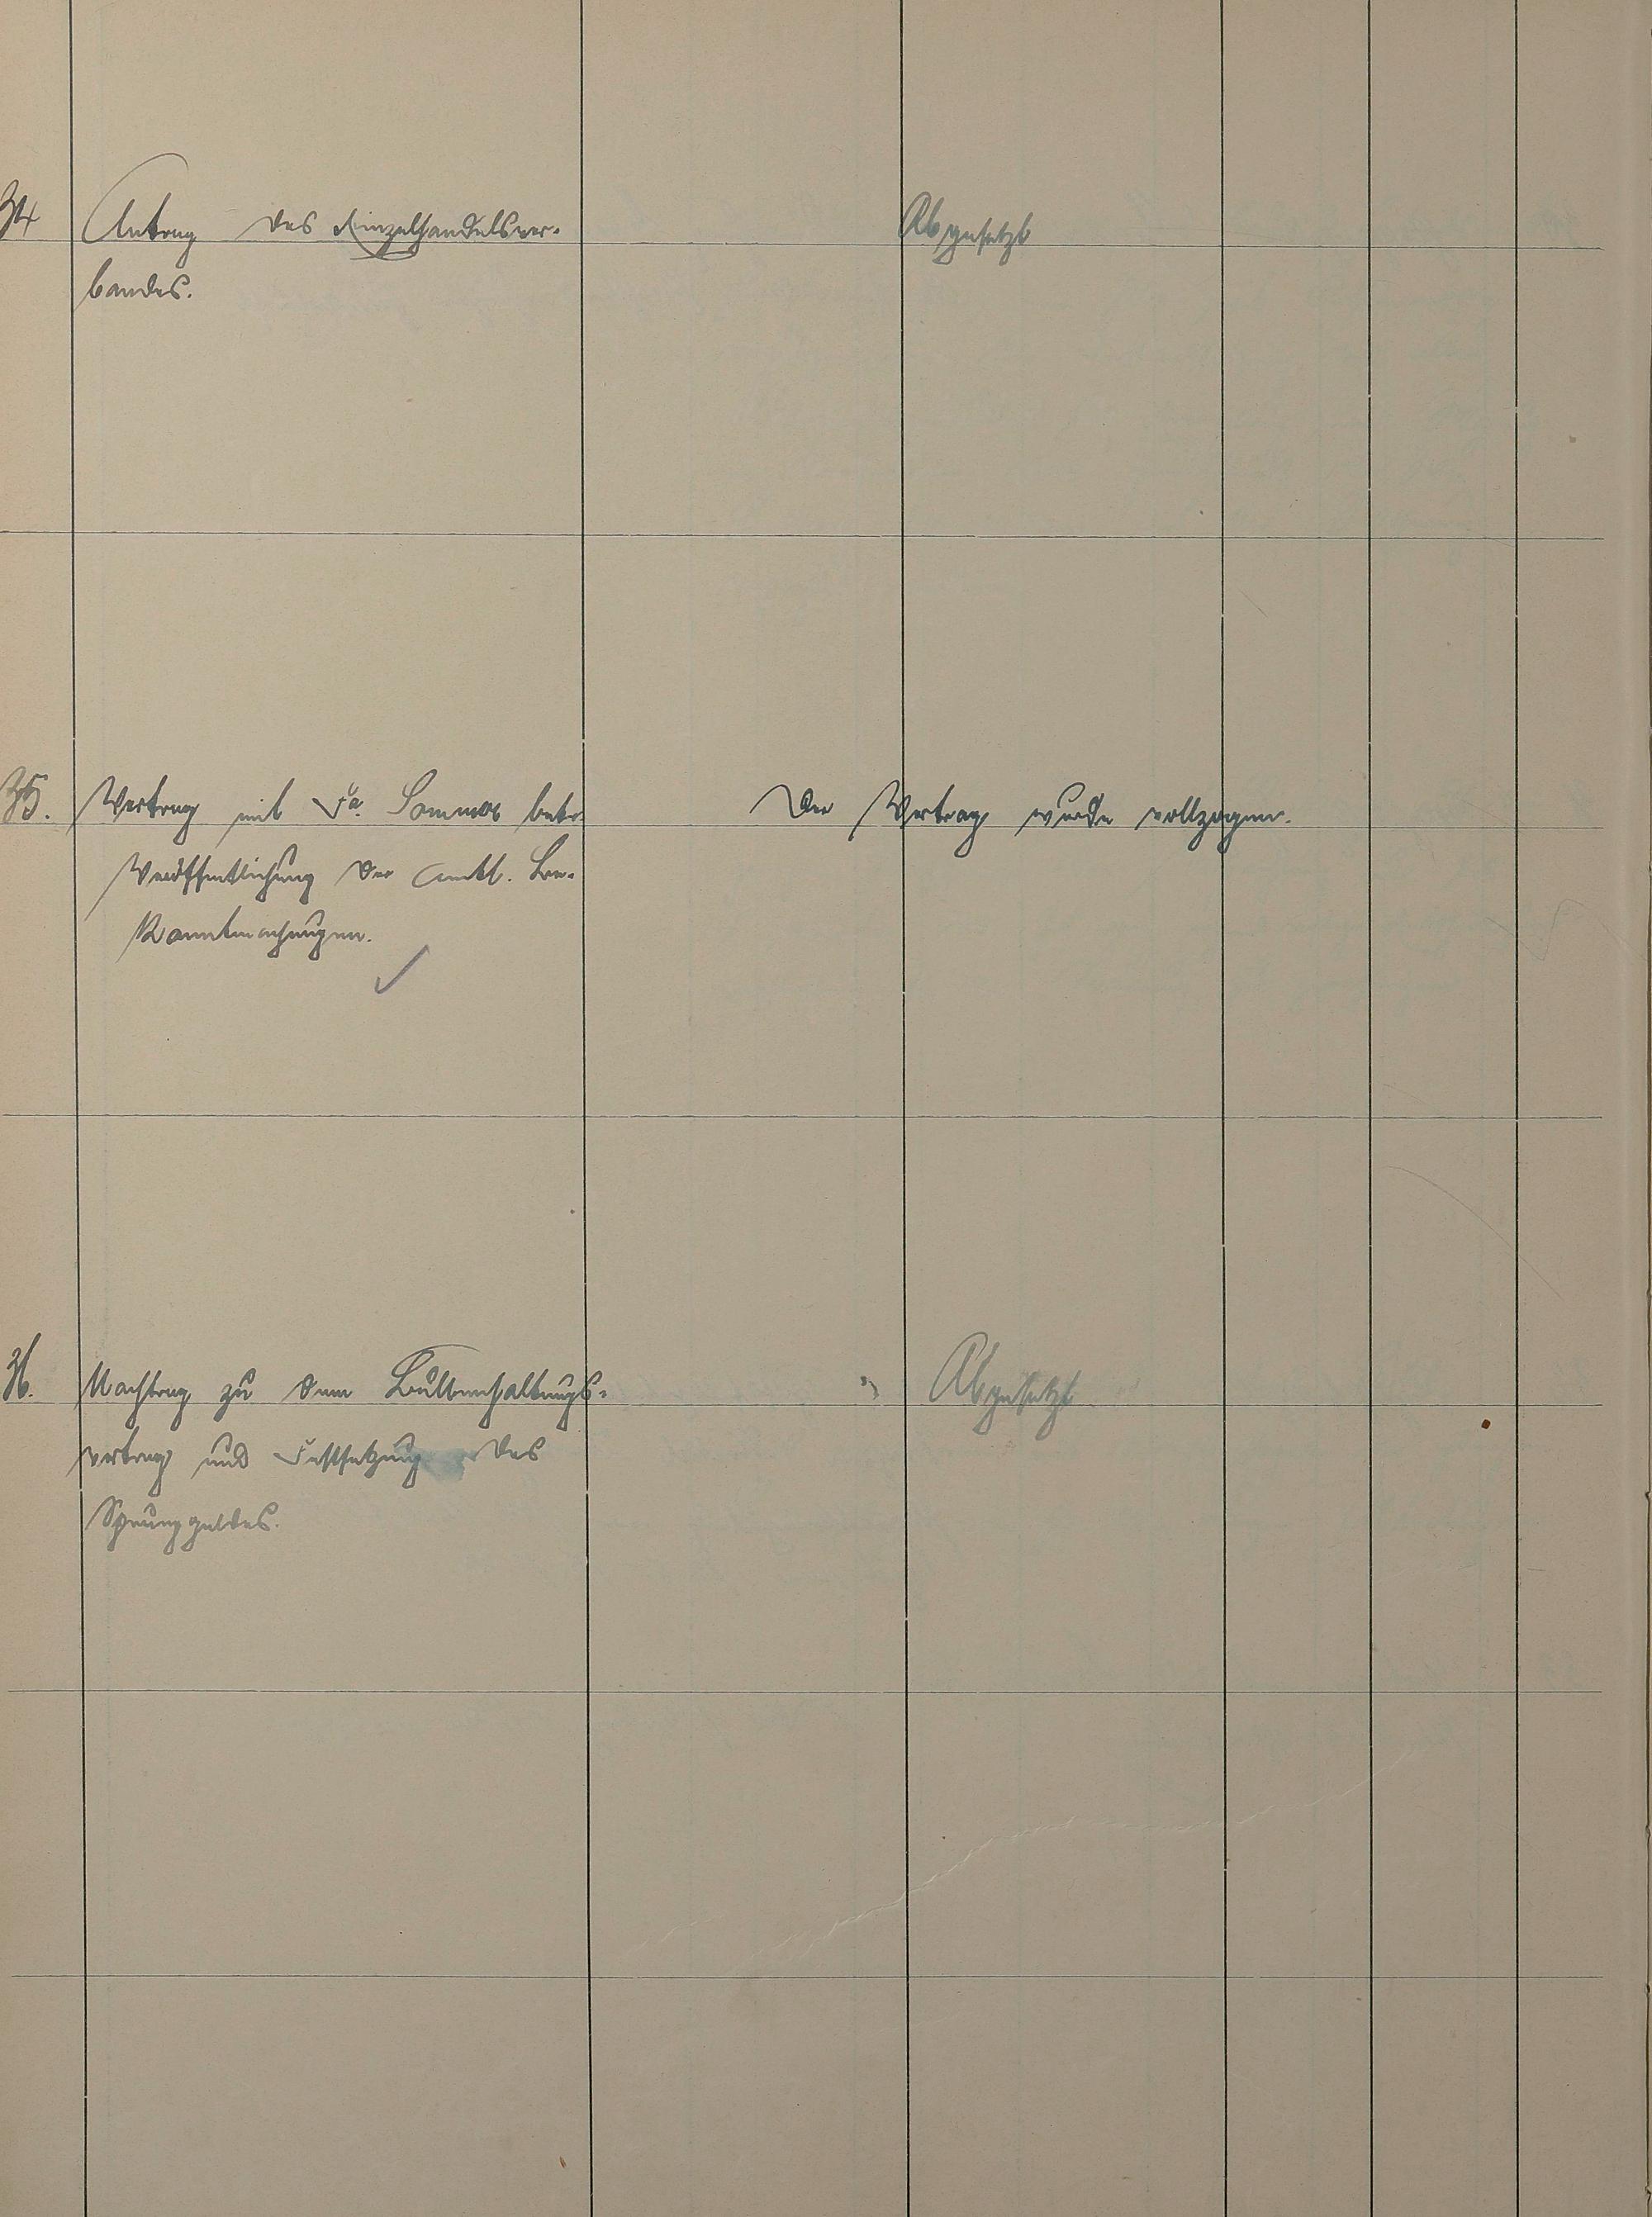 34 Antrag des Einzelhandelsver-
bandes.
Abgesetzt
35. Vertrag mit Fa. Sommer betr.
Veröffentlichung der amtl. Be-
kanntmachungen.
Der Vertrag wurde vollzogen.
36. Nachtrag zu dem Bullenhaltungs-
vertrag und Festsetzung des
Sprunggeldes.
Abgesetzt